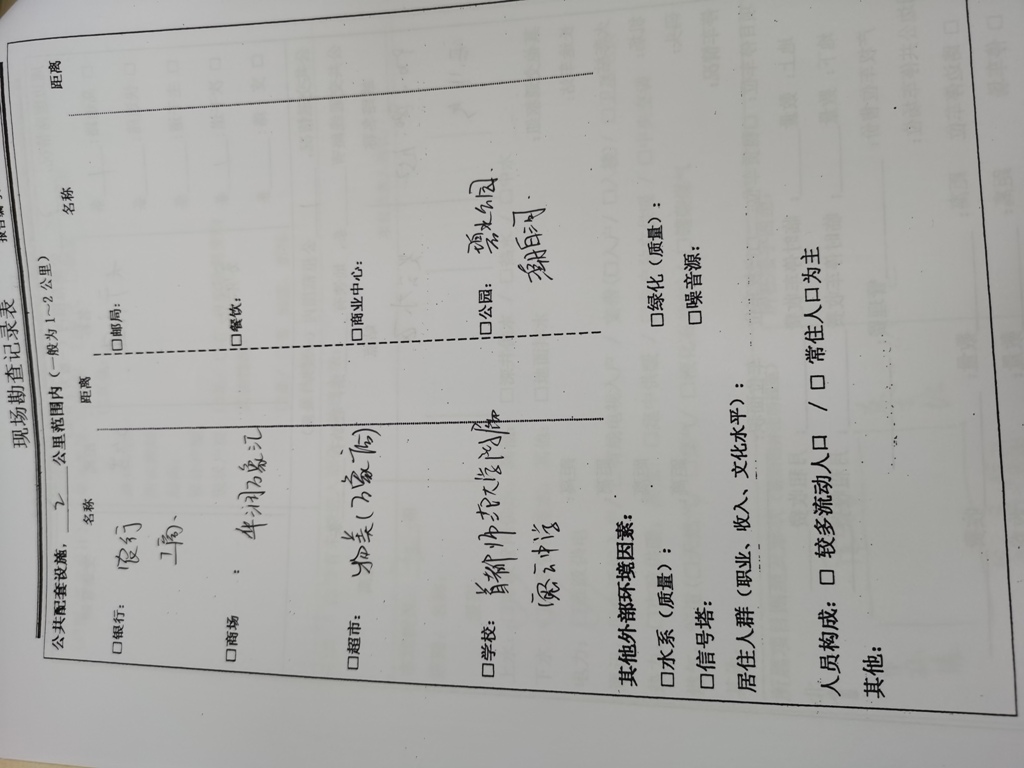 现场勘查记录表
公共配套设施, 2 公里范围内 (一般为 1~2 公里)
名称 距离 名称 距离
□银行: 农行 □邮局:
工商、
□商场 : 华润万象汇 □餐饮:
□超市: 物美(万象汇店) □商业中心:
□学校: 首都师范大学附属 □公园: 碧水公园.
密云中学
其他外部环境因素:
□水系(质量): □绿化(质量):
□信号塔: □噪音源:
居住人群(职业、收入、文化水平):
人员构成: □ 较多流动人口 / □ 常住人口为主
其他: